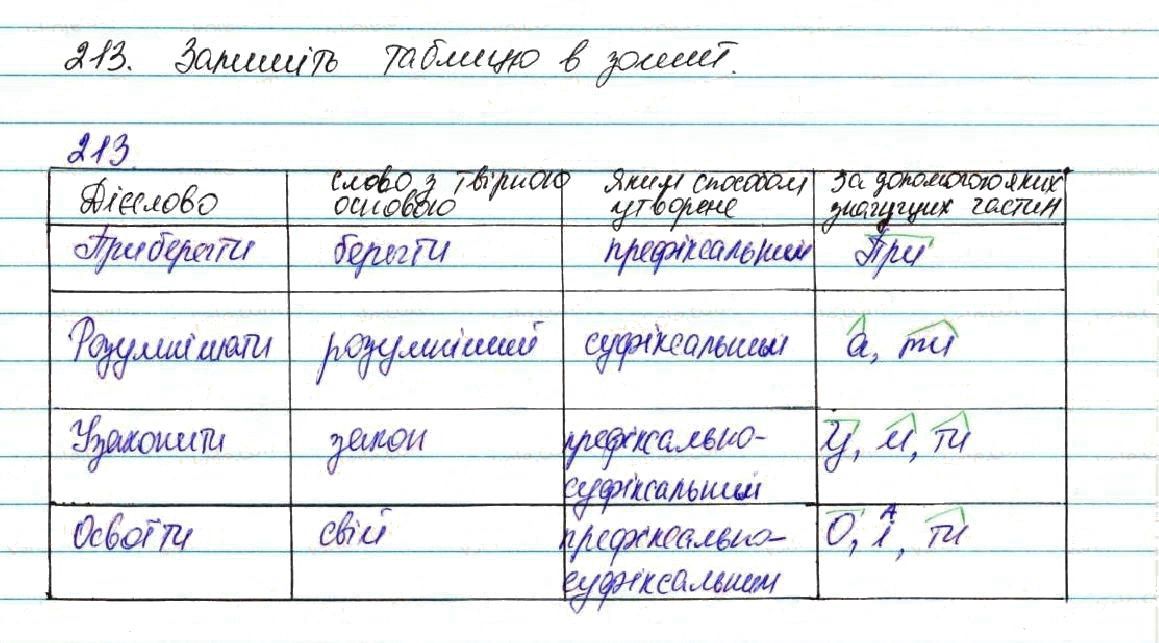 213. Запишіть таблицю в зошит.
213
Дієслово слово з твірною основою Яким способом утворене За допомогою яких значущих частин
Приберегти берегти префіксальним При
Розумнішати розумніший суфіксальним а, ти
Узаконити закон префіксально-суфіксальним У, и, ти
Освоїти свій префіксально-суфіксальним О, і, ти